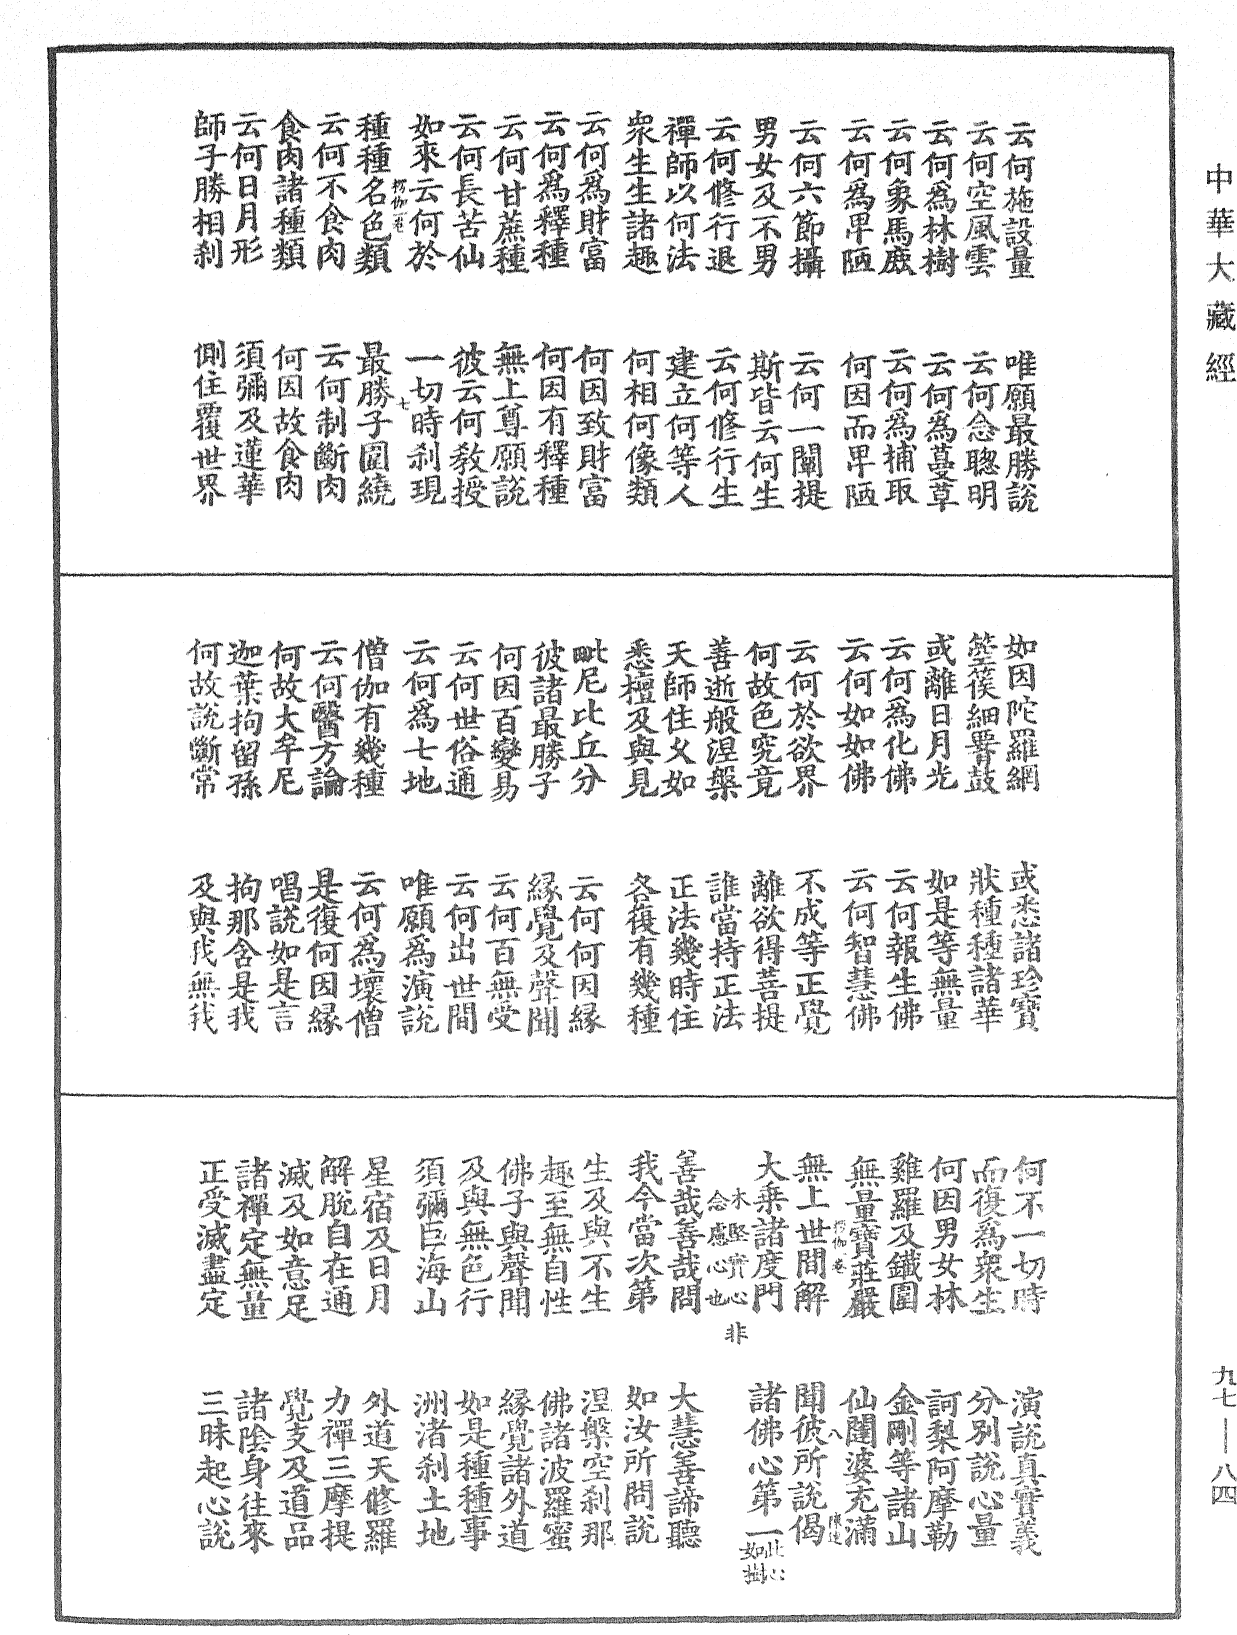 中華大藏經
云何施設量　唯願最勝說
云何空風雲　云何念聰明
云何為林樹　云何為蔓草
云何象馬鹿　云何為捕取
云何為卑陋　何因而卑陋
云何六節攝　云何一闡提
男女及不男　斯皆云何生
云何修行退　云何修行生
禪師以何法　建立何等人
衆生生諸趣　何相何像類
云何為財富　何因致財富
云何為釋種　何因有釋種
云何甘蔗種　無上尊願說
云何長苦仙　彼云何教授
如來云何於　一切時剎現
種種名色類　最勝子圍繞
云何不食肉　云何制斷肉
食肉諸種類　何因故食肉
云何日月形　須彌及蓮華
師子勝相剎　側住覆世界
如因陀羅網　或悉諸珍寶
箜篌細腰鼓　狀種種諸華
或離日月光　如是等無量
云何為化佛　云何報生佛
云何如如佛　云何智慧佛
云何於欲界　不成等正覺
何故色究竟　離欲得菩提
善逝般涅槃　誰當持正法
天師住久如　正法幾時住
悉檀及與見　各復有幾種
毗尼比丘分　云何何因緣
彼諸最勝子　緣覺及聲聞
何因百變易　云何百無受
云何世俗通　云何出世間
云何為七地　唯願為演說
僧伽有幾種　云何為壞僧
云何醫方論　是復何因緣
何故大牟尼　唱說如是言
迦葉拘留孫　拘那含是我
何故說斷常　及與我無我
何不一切時　演說真實義
而復為衆生　分別說心量
何因男女林　訶梨阿摩勒
雞羅及鐵圍　金剛等諸山
無量寶莊嚴　仙闥婆充滿
無上世間解　聞彼所說偈
大乘諸度門　諸佛心第一此心如樹
木堅實心非
念慮心也
善哉善哉問　大慧善諦聽
我今當次第　如汝所問說
生及與不生　涅槃空剎那
趣至無自性　佛諸波羅蜜
佛子與聲聞　緣覺諸外道
及與無色行　如是種種事
須彌巨海山　洲渚剎土地
星宿及日月　外道天修羅
解脫自在通　力禪三摩提
滅及如意足　覺支及道品
諸禪定無量　諸陰身往來
正受滅盡定　三昧起心說
九七—八四